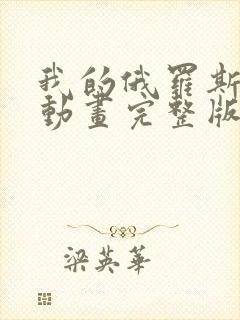 我的俄羅斯
動畫完整版
梁英華